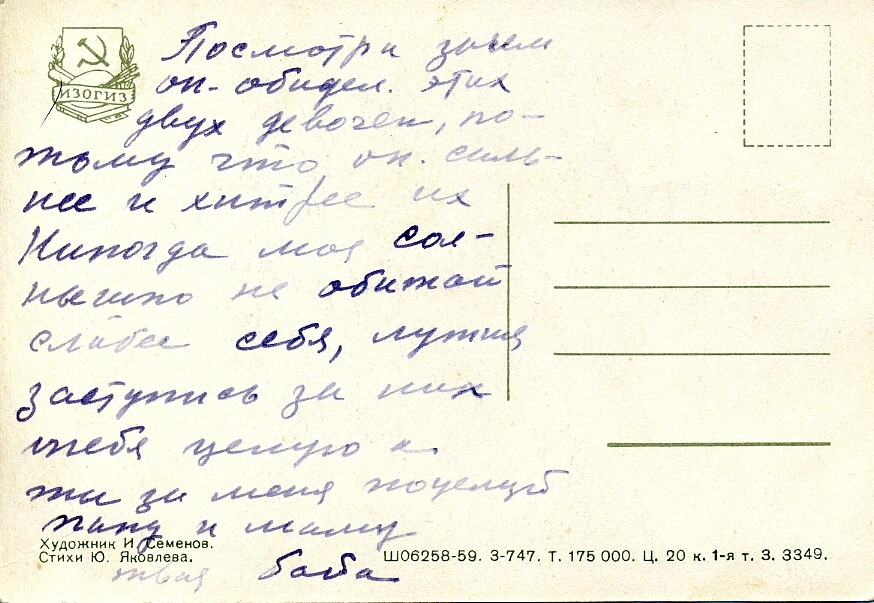 ИЗОГИЗ
Посмотри зачем
он обидел этих
двух девочек, по-
тому что он силь-
нее и хитрее их
Никогда моя сол-
нышко не обижай
слабее себя, лутше
заступись за них
тебя целую и
ты за меня поцелуй
папу и маму
твоя баба
Художник И. Семенов.
Стихи Ю. Яковлева.
Ш06258-59. З-747. Т. 175 000. Ц. 20 к. 1-я т. З. 3349.